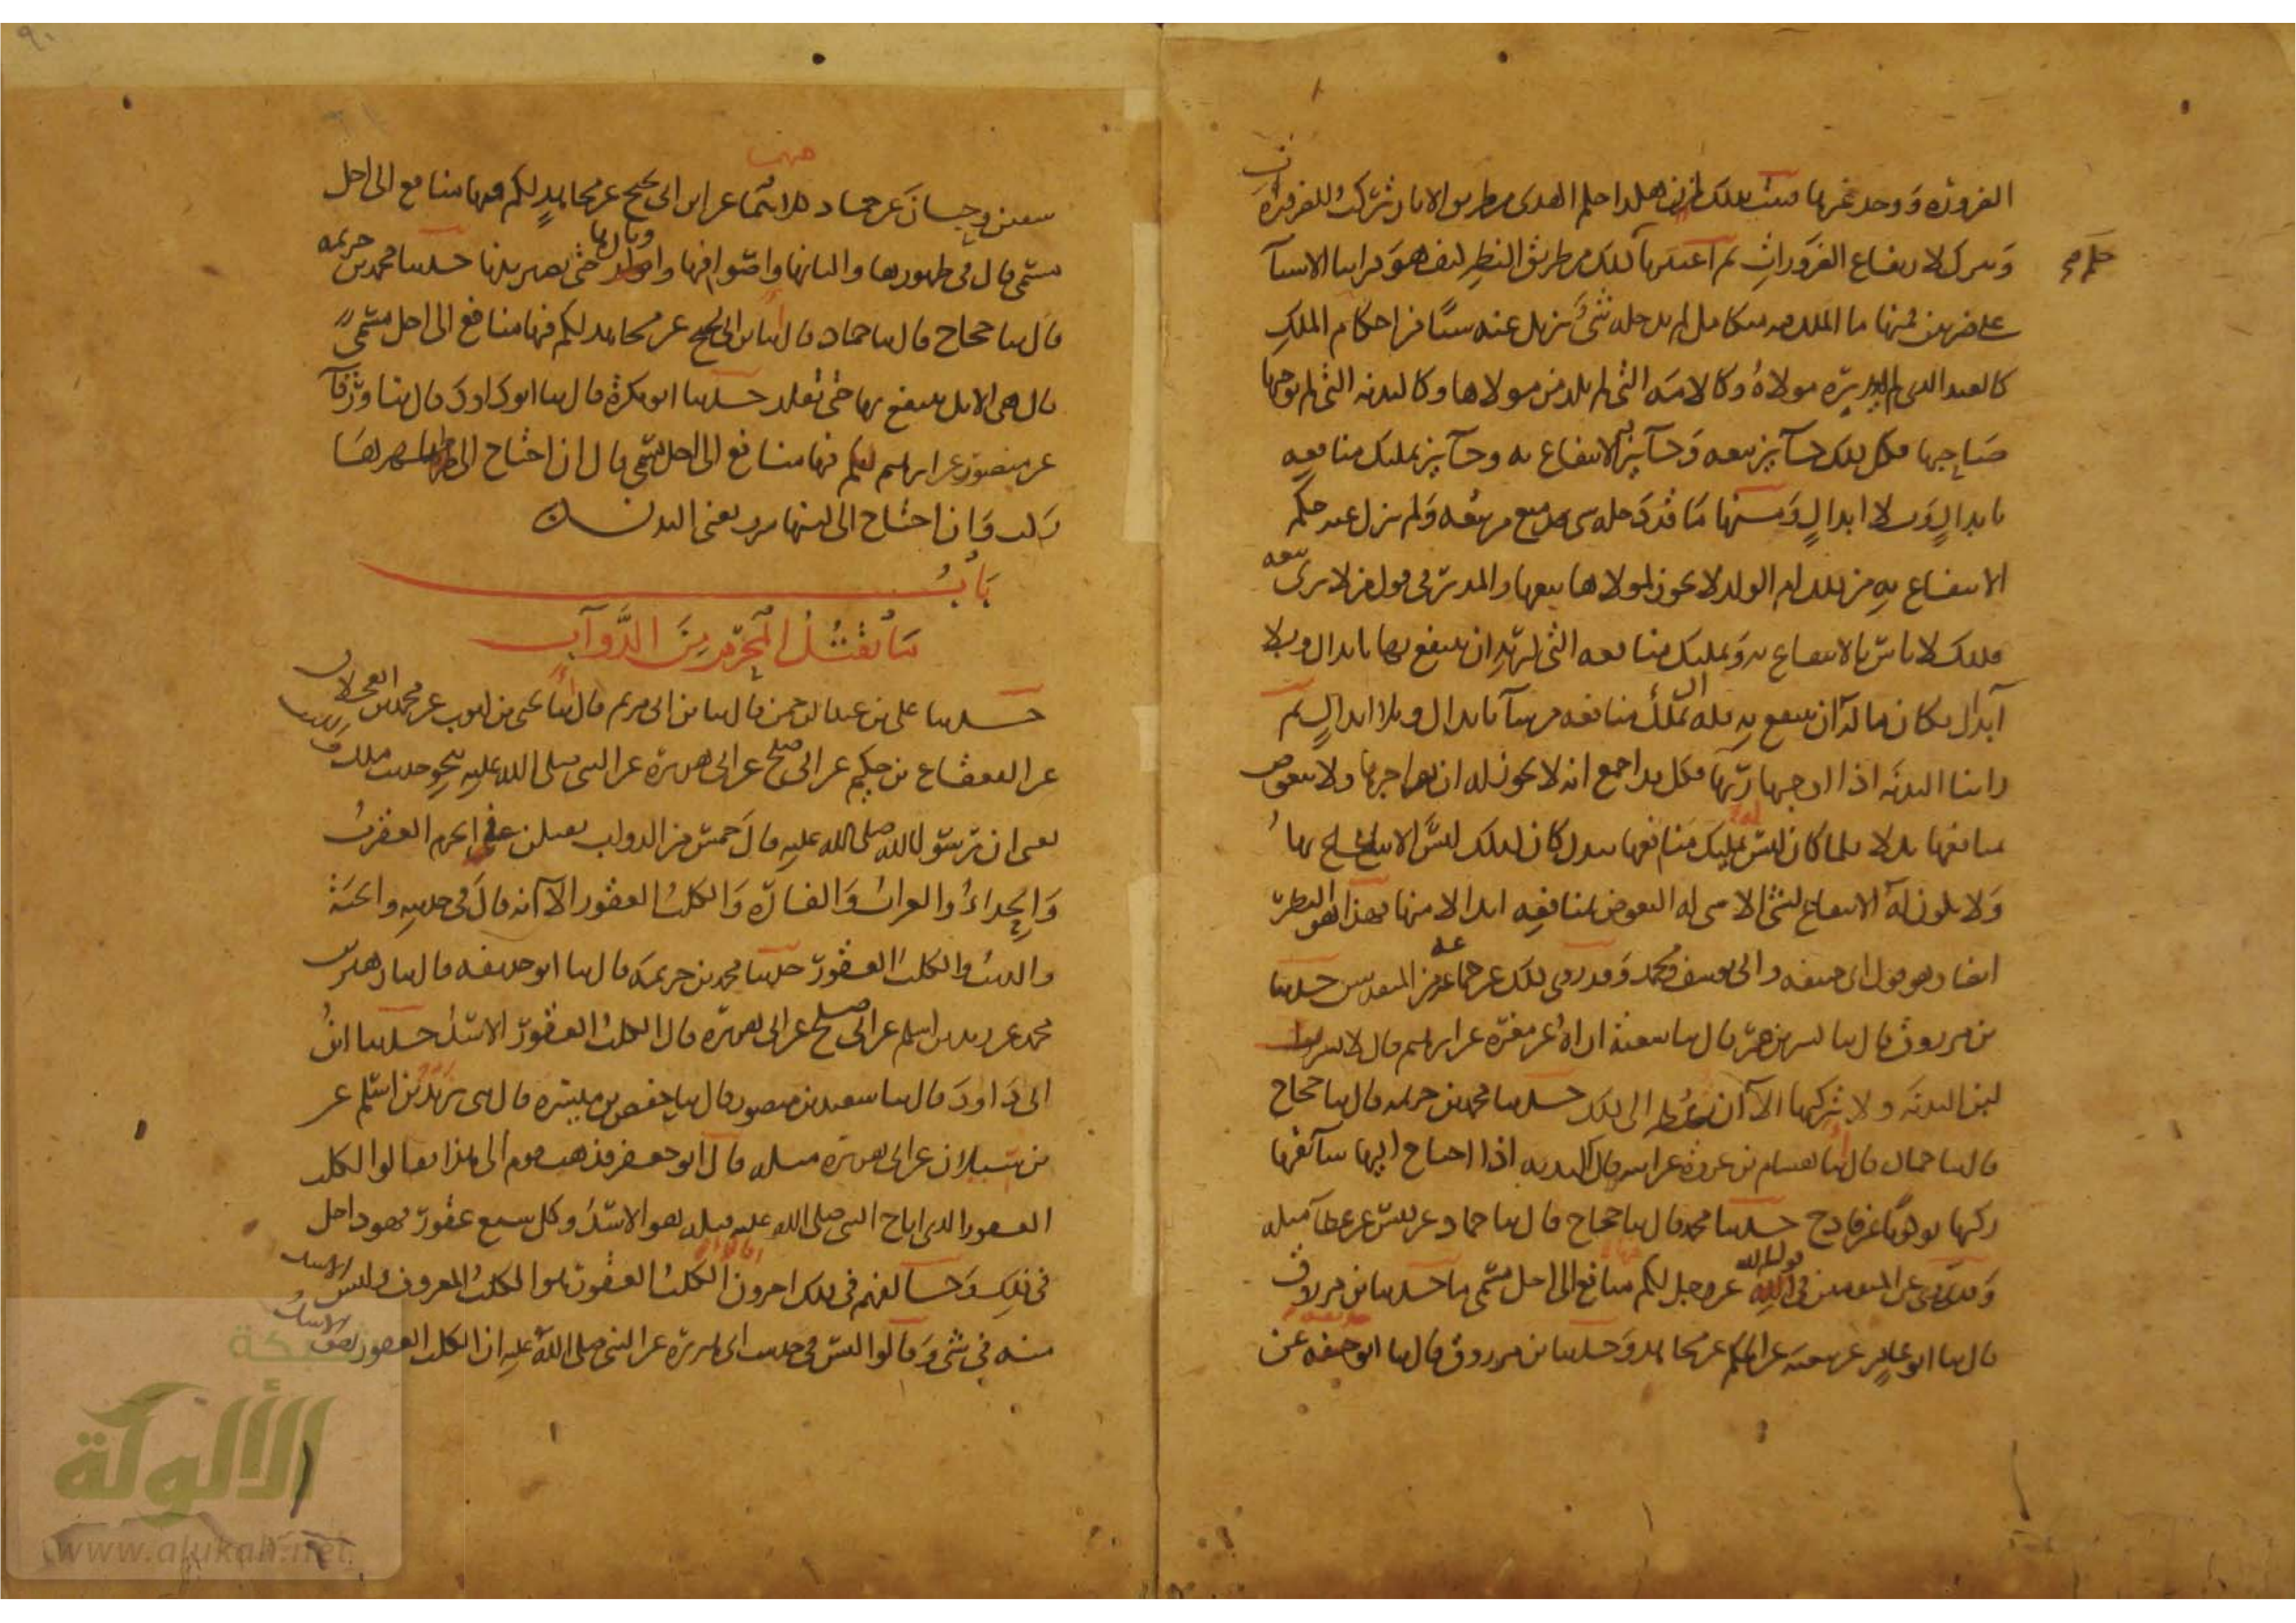 الضرورة ووجد غيرها فثبت بذلك ان هكذا حكم الهدي من طريق الآثار تركب للضرورات
حكم
وتترك لارتفاع الضرورات ثم اعتبرنا ذلك من طريق النظر كيف هو فراينا الاشياء
على ضربين فمنها ما الملك فيه متكامل لم يدخله شيء يزيل عنه شيئا من احكام الملك
كالعبد الذي لم يدبره مولاه وكالامة التي لم تلد من مولاها وكالبدنة التي لم يوجبها
صاحبها فكل ذلك جائز بيعه وجائز الانتفاع به وجائز تمليك منافعه
بابدال وبلا ابدال ومنها ما قد دخله شيء منع من بيعه ولم يزل عنه حكم
الانتفاع به من ذلك ام الولد لا يجوز لمولاها بيعها والمدبر في قول من لا يرى بيعه
فذلك لا باس بالانتفاع به وبتمليك منافعه التي لربه ان ينتفع بها بابدال وبلا
ابدال فكان ما له ان ينتفع به فله ان يملك منافعه من شاء بابدال وبلا ابدال ثم
راينا البدنة اذا اوجبها ربها فكل قد اجمع انه لا يجوز له ان يؤاجرها ولا يتعوض
بمنافعها بدلا فلما كان ليس له تمليك منافعها ببدل كان كذلك ليس له الانتفاع بها
ولا يكون له الانتفاع بشيء الا شيء له التعوض بمنافعه ابدالا منها فهذا هو النظر
ايضا وهو قول ابي حنيفة وابي يوسف ومحمد وقد روي ذلك عن جماعة من المتقدمين حدثنا
بن مرزوق قال ثنا بشر بن عمر قال ثنا شعبة اراه عن مغيرة عن ابراهيم قال لا يشرب
لبن البدنة ولا يركبها الا ان يضطر الى ذلك حدثنا محمد بن خزيمة قال ثنا حجاج
قال ثنا حماد قال انا هشام بن عروة عن ابيه قال البدنة اذا احتاج اليها سائقها
ركبها ركوبا غير فادح حدثنا محمد قال ثنا حجاج قال ثنا حماد عن قيس عن عطاء مثله
وقد روي عن المتقدمين في قول الله عز وجل لكم فيها منافع الى اجل مسمى ما حدثنا بن مرزوق
قال ثنا ابو عامر عن شعبة عن الحكم عن مجاهد وحدثنا بن مرزوق قال ثنا ابو حذيفة عن
سفين وحسان عن حماد كلاهما عن ابن ابي نجيح عن مجاهد لكم فيها منافع الى اجل
مسمى قال في ظهورها والبانها واصوافها واوبارها حتى تصير بدنا حدثنا محمد بن خزيمة
قال ثنا حجاج قال ثنا حماد قال انا ابن ابي نجيح عن مجاهد لكم فيها منافع الى اجل مسمى
قال هي الابل ينتفع بها حتى تقلد حدثنا ابو بكرة قال ثنا ابو داود قال ثنا ورقاء
عن منصور عن ابراهيم لكم فيها منافع الى اجل مسمى قال ان احتاج الى ظهرها
ركب وان احتاج الى لبنها شرب يعني البدن
باب
ما يقتل المحرم من الدواب
حدثنا علي بن عبد الرحمن قال ثنا بن ابي مريم قال انا يحيى بن ايوب عن محمد بن العجلان
عن القعقاع بن حكيم عن ابي صلح عن ابي هريرة عن النبي صلى الله عليه نحو حديث ملك والليث
يعني ان رسول الله صلى الله عليه قال خمس من الدواب يقتلن في الحرم العقرب
والحداء والغراب والفارة والكلب العقور الا انه قال في حديثه والحية
والذئب والكلب العقور حدثنا محمد بن خزيمة قال ثنا ابو حذيفة قال ثنا زهير بن
محمد عن زيد بن اسلم عن ابي صلح عن ابي هريرة قال الكلب العقور الاسد حدثنا ابن
ابي داود قال ثنا سعيد بن منصور قال ثنا حفص بن ميسرة قال ثني زيد بن اسلم عن
بن سيلان عن ابي هريرة مثله قال ابو جعفر فذهب قوم الى هذا فقالوا الكلب
العقور الذي اباح النبي صلى الله عليه قتله هو الاسد وكل سبع عقور فهو داخل
في ذلك وخالفهم في ذلك اخرون فقالوا الكلب العقور هو الكلب المعروف وليس الاسد
منه في شيء وقالوا ليس في حديث ابي هريرة عن النبي صلى الله عليه ان الكلب العقور هو الاسد
شبكة
الألوكة
www.alukah.net
٩٠